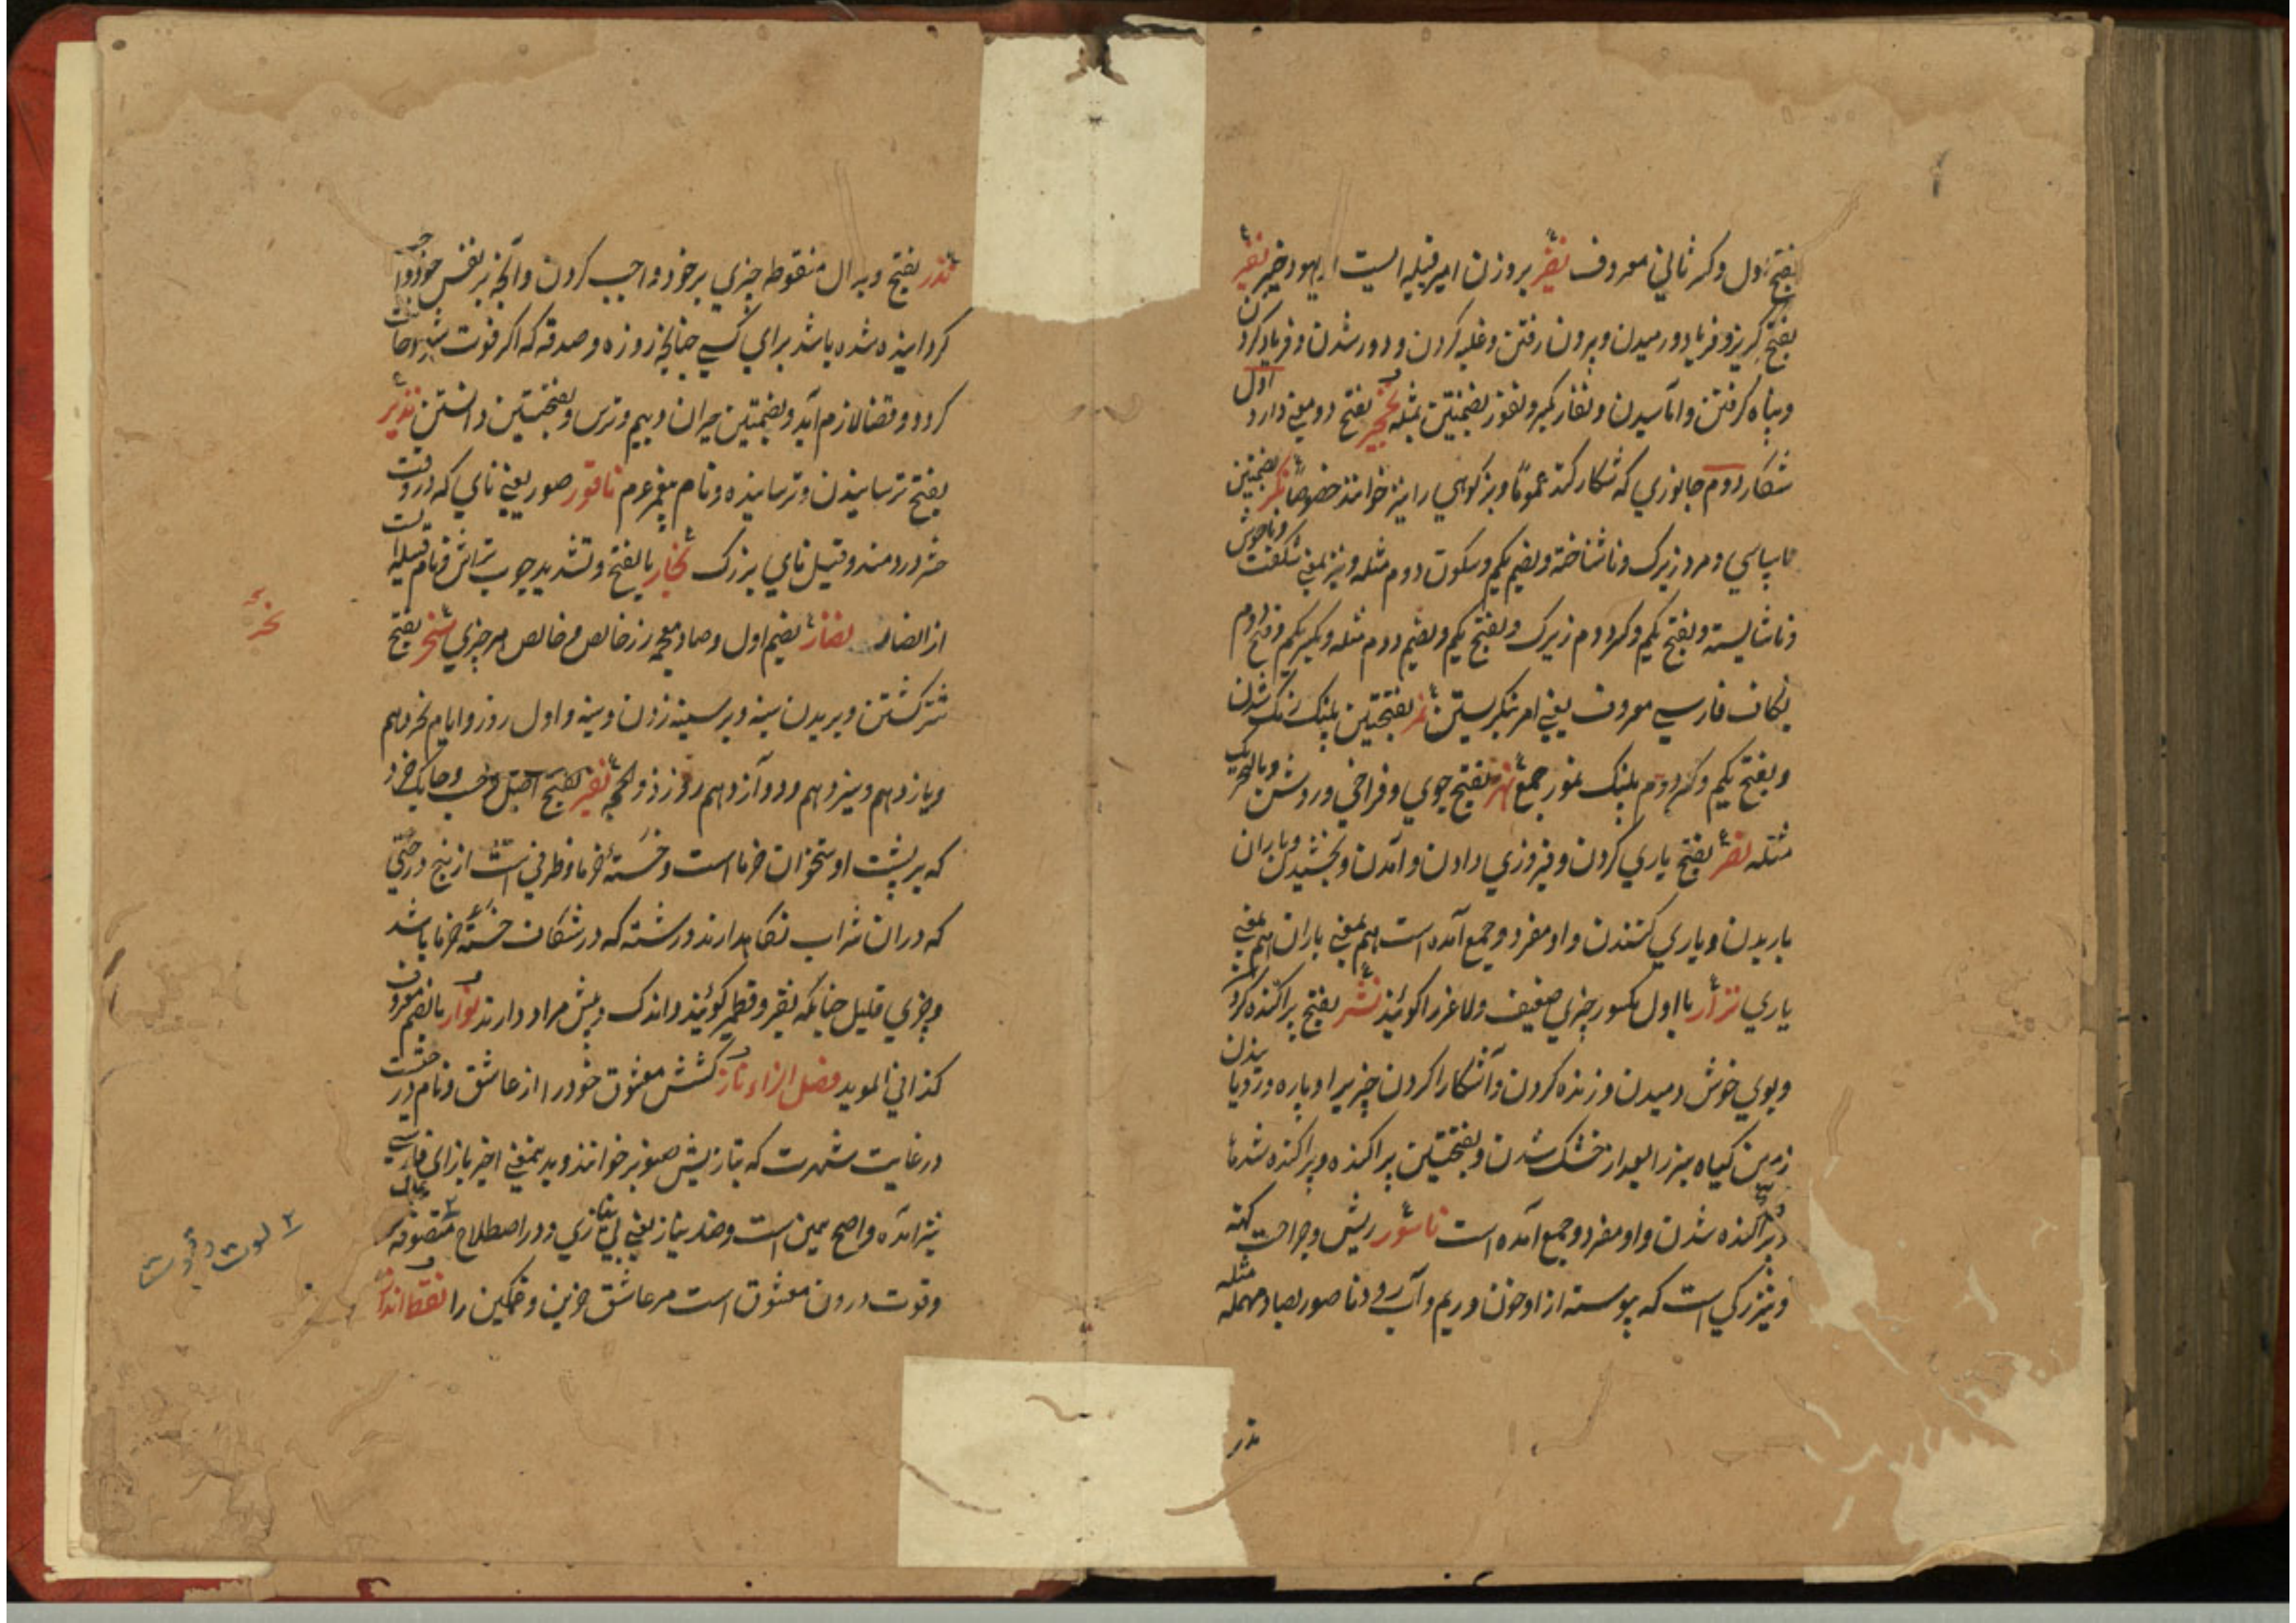 بفتح اول و کسر ثاني معروف نضیر بروزن امیر قبیله ایست از یهود خیبر نفیر
بفتح کریز و فریاد و رمیدن و بیرون رفتن و غلبه کردن و دور شدن و فریاد کردن
و پناه کرفتن و اماسیدن و نفار بکسر و نفور بضمتین مثله نخچیر بفتح دو معني دارد اول
شکار دوم جانوري که شکار کنند عموما و بز کوهي را نیز خوانند خصوصا نکر بضمتین
ناسپاسي و مرد زیرک و ناشناخته و بضم یکم و سکون دوم مثله و نیز بمعني شکفت و ناخوش
و ناشایسته و بفتح یکم و کسر دوم زیرک و بفتح یکم و بضم دوم مثله و بکسر یکم و فتح دوم
بکاف فارسي معروف یعني امر نکریستن نمر بفتحتین پلنک رنک شدن
و بفتح یکم و کسر دوم پلنک نمور جمع نهر بفتح جوي و فراخي و روشن و بالتحریک
مثله نصر بفتح یاري کردن و فیروزي دادن و آمدن و بخشیدن و باران
باریدن و یاري کنندن و او مفرد و جمع آمده است هم بمعني باران هم بمعني
یاري نزار با اول مکسور چیزي ضعیف و لاغر را کویند نشر بفتح پراکنده کردن
و بوي خوش دمیدن و زنده کردن و آشکارا کردن چیزیرا و پاره و رویانیدن
زمین کیاه سبز را بعد از خشک شدن و بفتحتین پراکنده و پراکنده شدن
و پراکنده شدن و او مفرد و جمع آمده است ناسور ریش و جراحت کهنه
و نیز رکي است که پیوسته از او خون و ریم و آب رود و ناصور بصاد مهمله مثله
نذر
نذر بفتح و بدال منقوطه چیزي بر خود واجب کردن و آنچه بر نفس خود واجب
کردانیده شده باشد براي کسي چنانچه روزه و صدقه که اکر فوت شود
کردد و قضا لازم آید و بضمتین حیران و بیم و ترس و بفتحتین دانستن نذیر
بفتح ترسانیدن و ترسانیده و نام پیغمبر عم ناقور صور یعني ناي که در وقت
حشر در دمند و قیل ناي بزرک نجار بالفتح و تشدید چوب تراش و نام قبیله است
از انصار نضار بضم اول و ضاد معجمه زر خالص و خالص هر چیزي نحر بفتح
شتر کشتن و بریدن سینه و بر سینه زدن و سینه و اول روز و ایام نحر دهم
و یازدهم و سیزدهم و دوازدهم روز ذو الحجه نقیر بفتح اصل و چاهک خرد
که بر پشت اوستخوان خرما است و خسته خرما و ظرفي است از بیخ درختي
که دران شراب نکاهدارند و رشته که در شکاف خسته خرما باشد
و چیزي قلیل چنانکه نقیر و قطمیر کویند و اندک و بیش مراد دارند نوار بالضم معروف
کذا في الموید فصل الزاء ناز کشش معشوق خود را از عاشق و نام درختیست
در غایت شهرت که بتازیش صنوبر خوانند و بدینمعني اخیر بازاي فارسي
نیز آمده و اصح همین است و ضد نیاز یعني بي نیازي و در اصطلاح متصوفه
و قوت درون معشوق است مر عاشق حزین و غمکین را نقط انداز
نحر